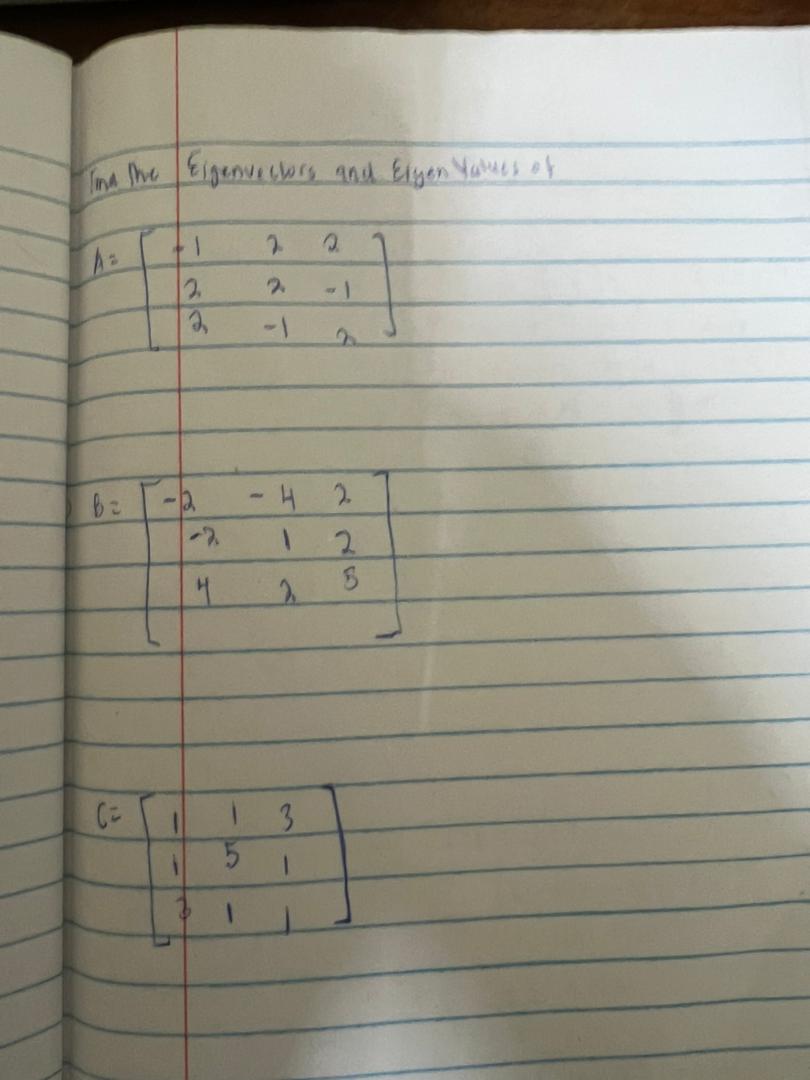 Find the Eigenvectors and Eigen Values of
A= [ -1 2 2
2 2 -1
2 -1 2 ]
B= [ -2 -4 2
-2 1 2
4 2 5 ]
C= [ 1 1 3
1 5 1
3 1 1 ]